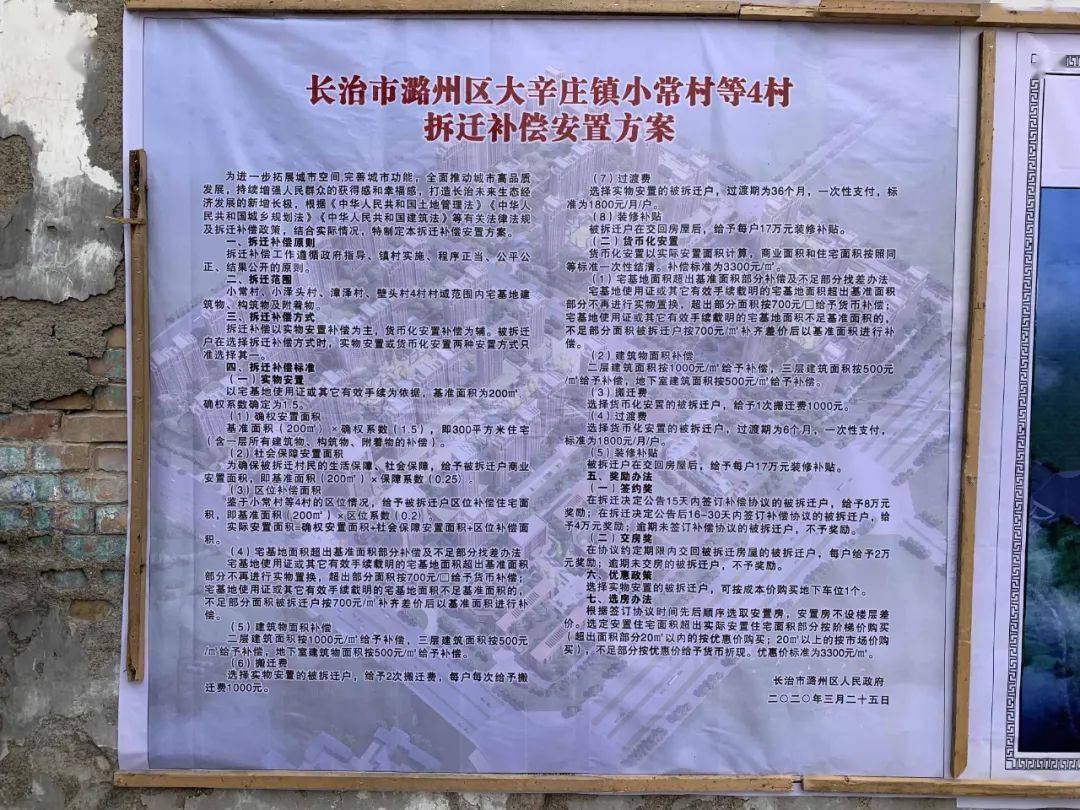 长治市潞州区大辛庄镇小常村等4村
拆迁补偿安置方案
为进一步拓展城市空间,完善城市功能，全面推动城市高品质
发展，持续增强人民群众的获得感和幸福感，打造长治未来生态经
济发展的新增长极，根据《中华人民共和国土地管理法》《中华人
民共和国城乡规划法》《中华人民共和国建筑法》等有关法律法规
及拆迁补偿政策，结合实际情况，特制定本拆迁补偿安置方案。
一、拆迁补偿原则
拆迁补偿工作遵循政府指导、镇村实施、程序正当、公平公
正、结果公开的原则。
二、拆迁范围
小常村、小泽头村、漳泽村、壁头村4村村域范围内宅基地建
筑物、构筑物及附着物。
三、拆迁补偿方式
拆迁补偿以实物安置补偿为主，货币化安置补偿为辅。被拆迁
户在选择拆迁补偿方式时，实物安置或货币化安置两种安置方式只
准选择其一。
四、拆迁补偿标准
（一）实物安置
以宅基地使用证或其它有效手续为依据，基准面积为200㎡，
确权系数确定为1.5。
（1）确权安置面积
基准面积（200㎡）×确权系数（1.5），即300平方米住宅
（含一层所有建筑物、构筑物、附着物的补偿）。
（2）社会保障安置面积
为确保被拆迁村民的生活保障、社会保障，给予被拆迁户商业
安置面积，即基准面积（200㎡）×保障系数（0.25）。
（3）区位补偿面积
鉴于小常村等4村的区位情况，给予被拆迁户区位补偿住宅面
积，即基准面积（200㎡）×区位系数（0.2）
实际安置面积=确权安置面积+社会保障安置面积+区位补偿面
积。
（4）宅基地面积超出基准面积部分补偿及不足部分找差办法
宅基地使用证或其它有效手续载明的宅基地面积超出基准面积
部分不再进行实物置换，超出部分面积按700元/□给予货币补偿；
宅基地使用证或其它有效手续载明的宅基地面积不足基准面积的，
不足部分面积被拆迁户按700元/㎡补齐差价后以基准面积进行补
偿。
（5）建筑物面积补偿
二层建筑面积按1000元/㎡给予补偿，三层建筑面积按500元
/㎡给予补偿，地下室建筑物面积按500元/㎡给予补偿。
（6）搬迁费
选择实物安置的被拆迁户，给予2次搬迁费，每户每次给予搬
迁费1000元。
（7）过渡费
选择实物安置的被拆迁户，过渡期为36个月，一次性支付，标
准为1800元/月/户。
（8）装修补贴
被拆迁户在交回房屋后，给予每户17万元装修补贴。
（二）货币化安置
货币化安置以实际安置面积计算，商业面积和住宅面积按照同
等标准一次性结清。补偿标准为3300元/㎡。
（1）宅基地面积超出基准面积部分补偿及不足部分找差办法
宅基地使用证或其它有效手续载明的宅基地面积超出基准面积
部分不再进行实物置换，超出部分面积按700元/□给予货币补偿；
宅基地使用证或其它有效手续载明的宅基地面积不足基准面积的，
不足部分面积被拆迁户按700元/㎡补齐差价后以基准面积进行补
偿。
（2）建筑物面积补偿
二层建筑面积按1000元/㎡给予补偿，三层建筑面积按500元
/㎡给予补偿，地下室建筑面积按500元/㎡给予补偿。
（3）搬迁费
选择货币化安置的被拆迁户，给予1次搬迁费1000元。
（4）过渡费
选择货币化安置的被拆迁户，过渡期为6个月，一次性支付，
标准为1800元/月/户。
（5）装修补贴
被拆迁户在交回房屋后，给予每户17万元装修补贴。
五、奖励办法
（一）签约奖
在拆迁决定公告15天内签订补偿协议的被拆迁户，给予8万元
奖励；在拆迁决定公告后16-30天内签订补偿协议的被拆迁户，给
予4万元奖励；逾期未签订补偿协议的被拆迁户，不予奖励。
（二）交房奖
在协议约定期限内交回被拆迁房屋的被拆迁户，每户给予2万
元奖励；逾期未交房的被拆迁户，不予奖励。
六、优惠政策
选择实物安置的被拆迁户，可按成本价购买地下车位1个。
七、选房办法
根据签订协议时间先后顺序选取安置房，安置房不设楼层差
价。选定安置住宅面积超出实际安置住宅面积部分按阶梯价购买
（超出面积部分20㎡以内的按优惠价购买；20㎡以上的按市场价购
买），不足部分按优惠价给予货币折现。优惠价标准为3300元/㎡。
长治市潞州区人民政府
二〇二〇年三月二十五日